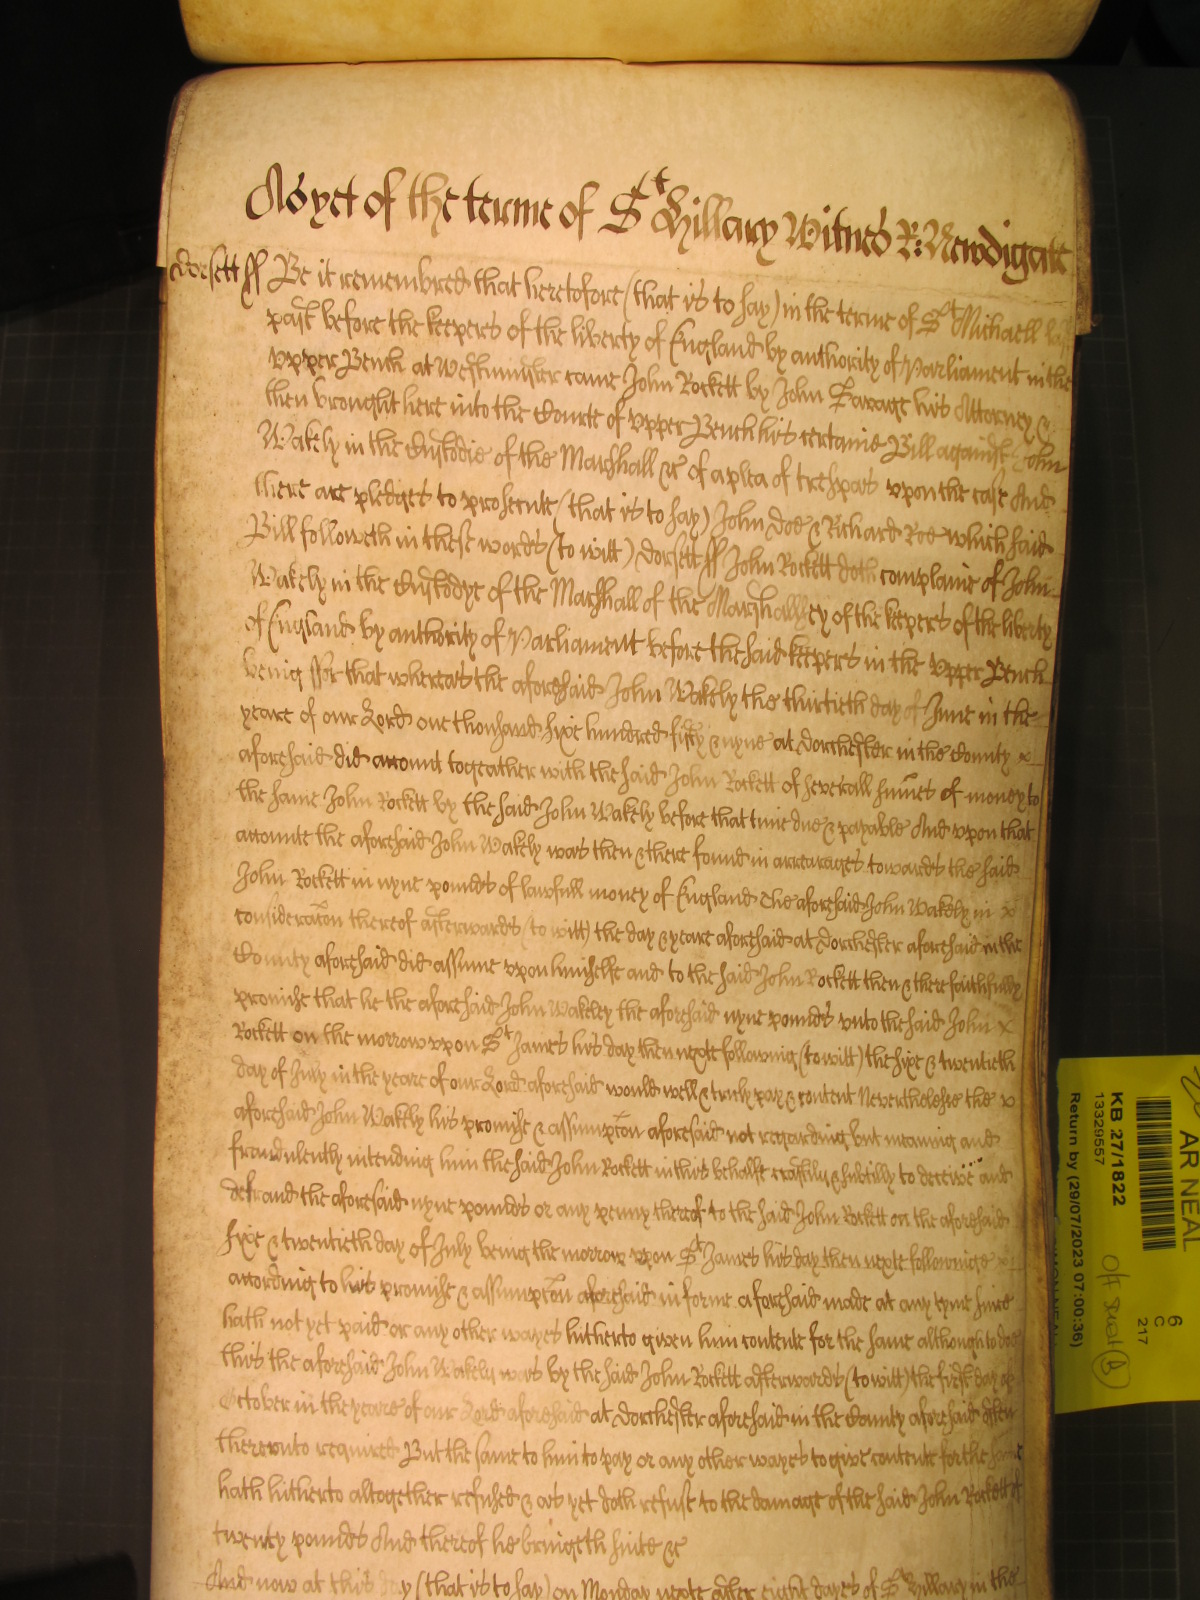 As yet of the terme of St Hillary Witnes R: Newdigate
Dorsett ss Be it remembred that heretofore (that is to say) in the terme of St Michaell last
past before the keepers of the liberty of England by authority of Parliament in the
Upper Bench at Westminster came John Rockett by John Savage his Attorney &
then brought here into the Courte of Upper Bench his certaine Bill against John
Wakely in the Custodie of the Marshall &c of a plea of trespas upon the case And
there are pledges to prosecute (that is to say) John Doe & Richard Roe which said
Bill followeth in these words (to witt) Dorsett ss John Rockett doth complaine of John
Wakely in the Custodye of the Marshall of the Marshallsey of the keepers of the liberty
of England by authority of Parliament before the said keepers in the Upper Bench
being ffor that whereas the aforesaid John Wakely the thirtieth day of June in the
yeare of our Lord one thousand sixe hundred fifty & nyne at Dorchester in the County x
aforesaid did account togeather with the said John Rockett of severall sumes of money to
the same John Rockett by the said John Wakely before that time due & payable And upon that
accounte the aforesaid John Wakely was then & there found in arrearages towards the said
John Rockett in nyne pounds of lawfull money of England The aforesaid John Wakely in x
consideracon thereof afterwards (to witt) the day & yeare aforesaid at Dorchester aforesaid in the
County aforesaid did assume upon himselfe and to the said John Rockett then & there faithfully
promise that he the aforesaid John Wakeley the aforesaid nyne pounds unto the said John x
Rockett on the morrow upon St James his day then nexte following (to witt) the sixe & twentieth
day of July in the yeare of our Lord aforesaid would well & truly pay & content Neverthelesse the x
aforesaid John Wakely his promise & assumpcon aforesaid not regarding but meaning and
fraudulently intending him the said John Rockett in this behalfe craftily & subtilly to deceive and
defraud the aforesaid nyne pounds or any penny thereof to the said John Rockett on the aforesaid
sixe & twentieth day of July being the morrow upon St James his day then nexte followinge x
according to his promise & assumpcon aforesaid in forme aforesaid made at any tyme since
hath not yet paid or any other wayes hitherto given him contente for the same although to doe
this the aforesaid John Wakely was by the said John Rockett afterwards (to witt) the first day of
October in the yeare of our Lord aforesaid at Dorchester aforesaid in the County aforesaid often
thereunto required But the same to him to pay or any other wayes to give contente for the same
hath hitherto altogether refused & as yet doth refuse to the damage of the said John Rockett of
twenty pounds And thereof he bringeth suite &c
And now at this day (that is to say) on Monday nexte after eight dayes of St Hillary in the
AR NEAL
6
C
217
KB 27/1822
13329557
Return by (29/07/2023 07:00:36)